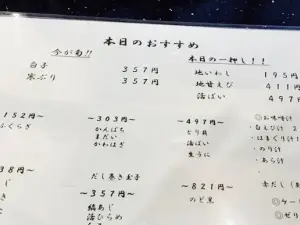 本日のおすすめ
今が旬!!
白子 357円
寒ぶり 357円
本日の一押し!!
地いわし 195円
地甘えび 411円
活ばい 497円
152円~
ふくらぎ
~303円~
かんぱち
まだい
かわはぎ
~497円~
とり貝
活ばい
生うに
◎お味噌汁
◎白えび汁 2
・はまぐり汁
・のり汁
・あら汁
38円~
あじ
だし巻き玉子
~357円~
縞あじ
活ひらめ
~821円~
のど黒
赤だし